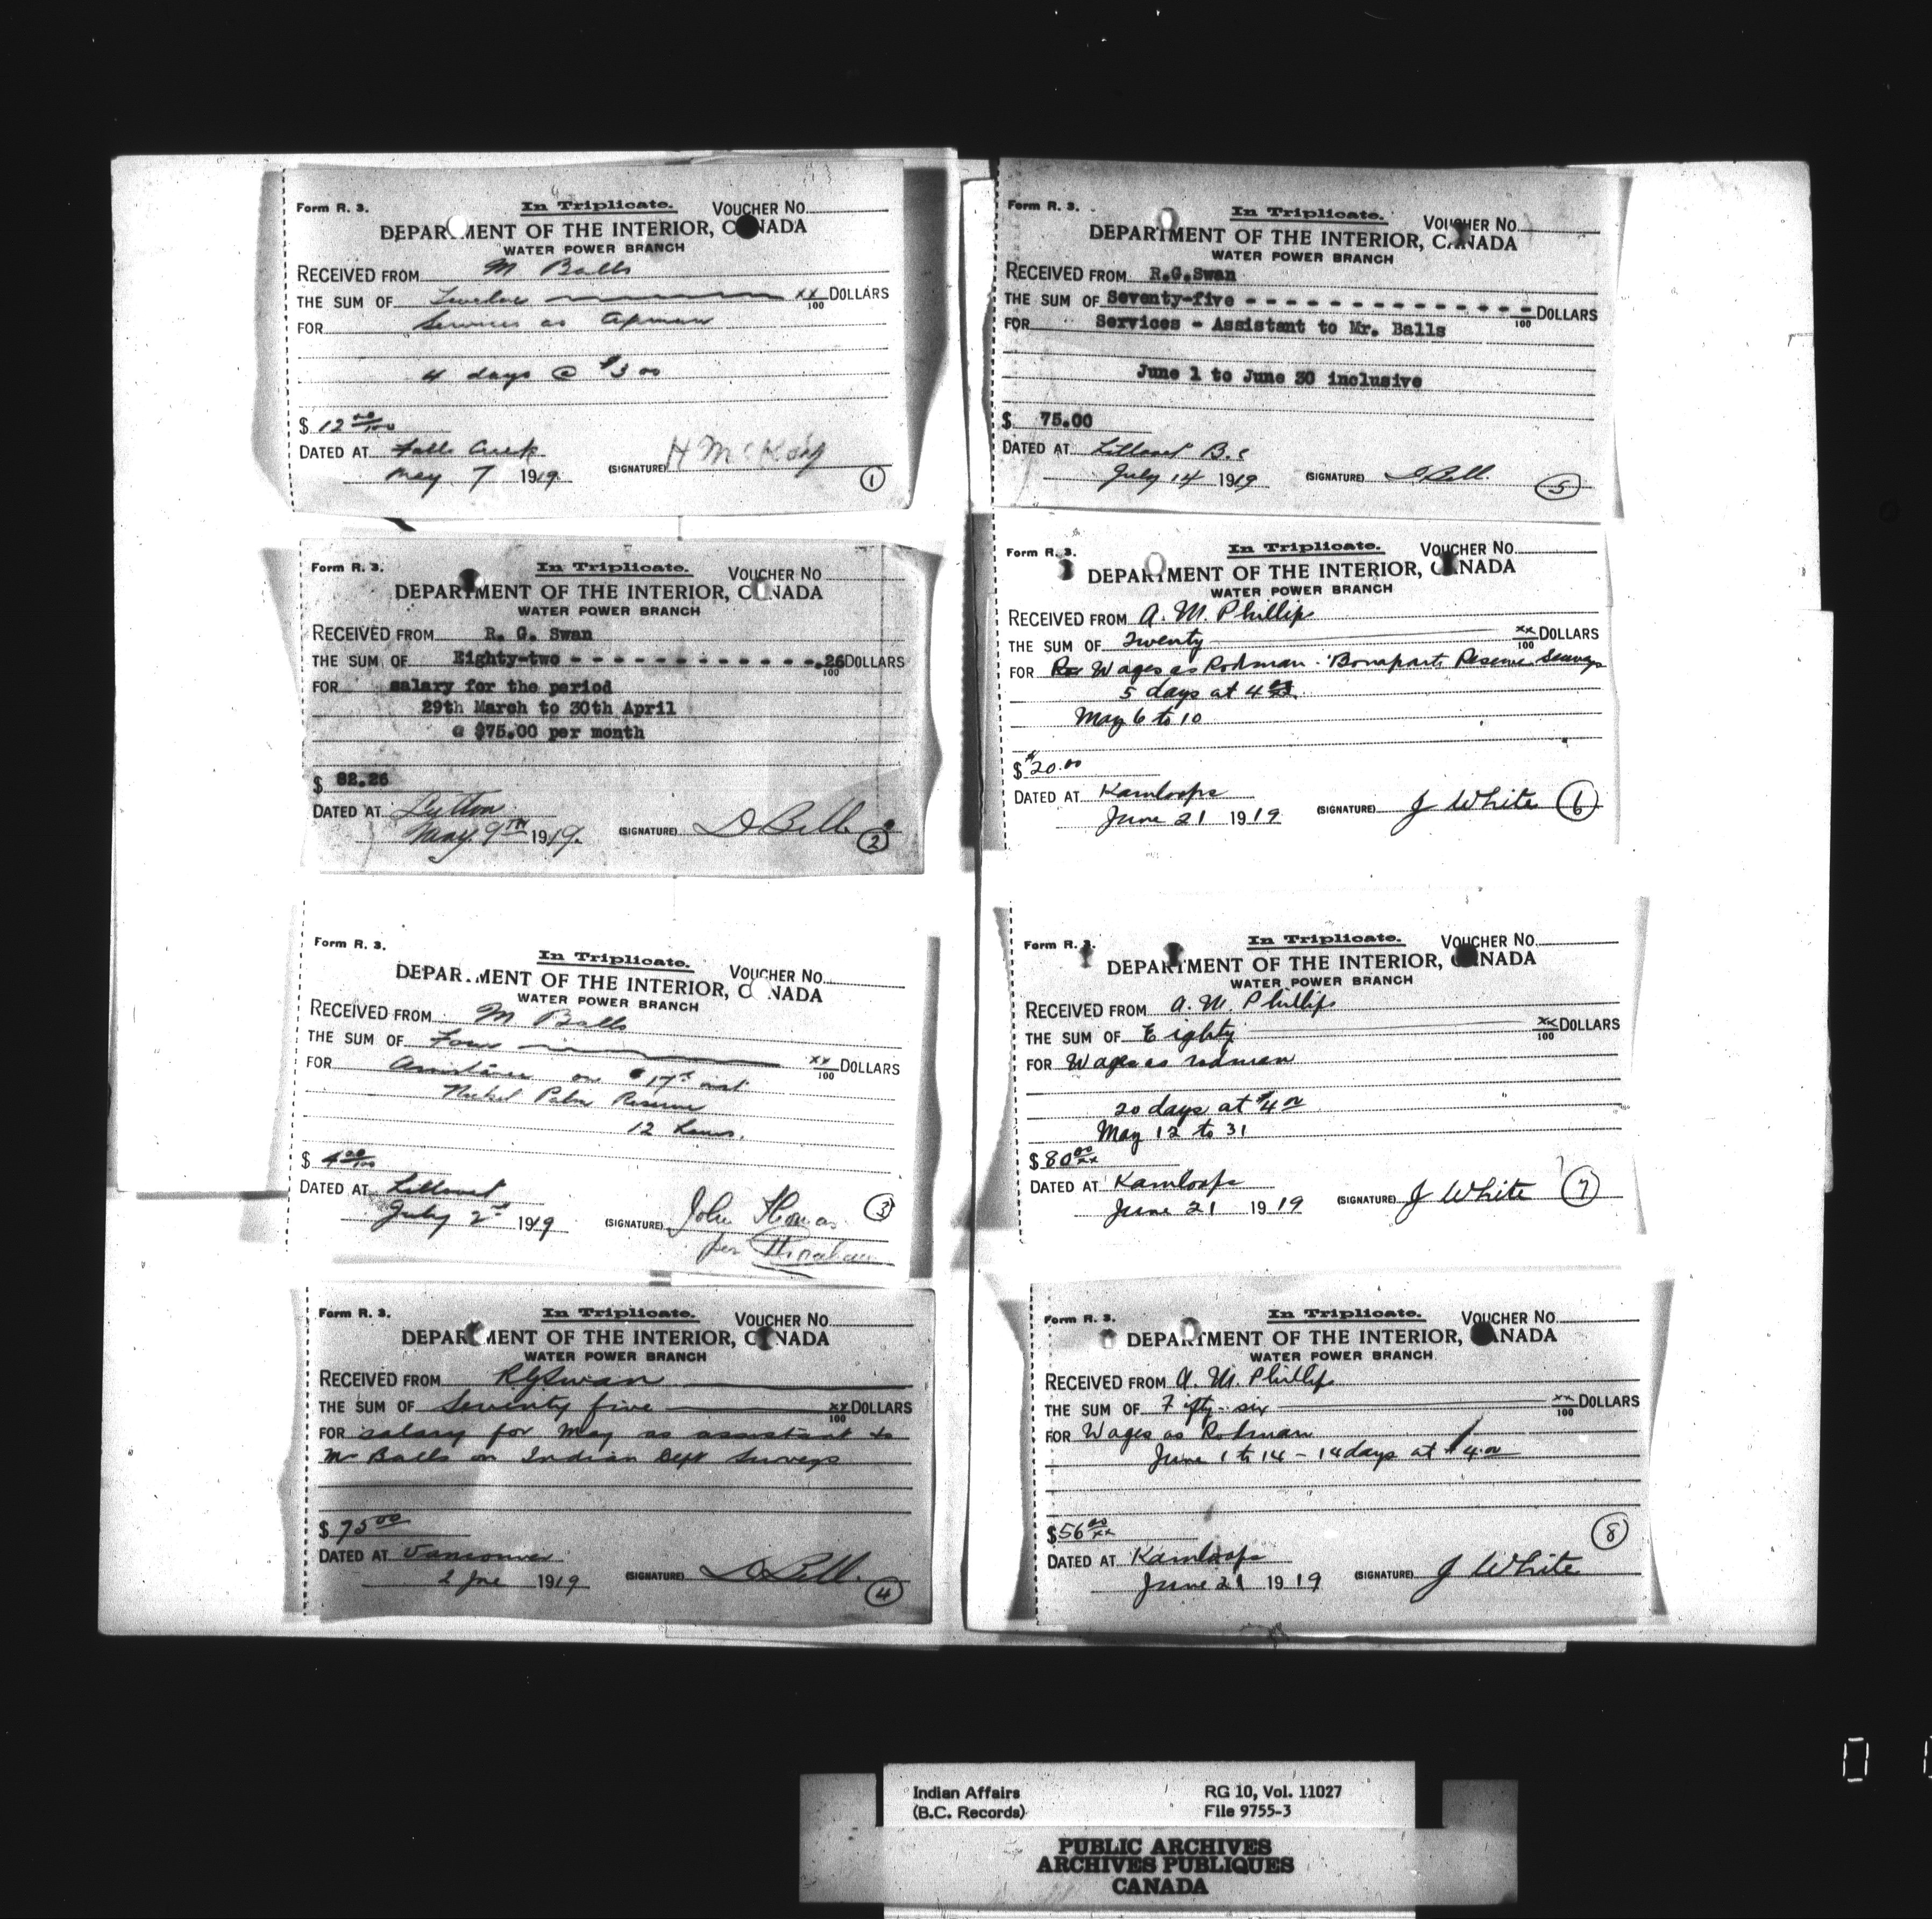 Form R. 3.
In Triplicate.
VOUCHER No.
DEPARTMENT OF THE INTERIOR, CANADA
WATER POWER BRANCH
RECEIVED FROM M Balls
THE SUM OF Twelve xx/100 DOLLARS
FOR Services as
4 days @ $3.00
$ 12 00/100
DATED AT Falls Creek
May 7 1919
(SIGNATURE) H McKay
1
Form R. 3.
In Triplicate.
VOUCHER No
DEPARTMENT OF THE INTERIOR, CANADA
WATER POWER BRANCH
RECEIVED FROM R. G. Swan
THE SUM OF Eighty-two - - - - - - - - - - - - .26/100 DOLLARS
FOR salary for the period
29th March to 30th April
@ $75.00 per month
$ 82.26
DATED AT Lytton
May 9TH 1919.
(SIGNATURE) D Bell
2
Form R. 3.
In Triplicate.
VOUCHER No.
DEPARTMENT OF THE INTERIOR, CANADA
WATER POWER BRANCH
RECEIVED FROM M Balls
THE SUM OF Four xx/100 DOLLARS
FOR Assistance on 17th inst
Nickel Palm Reserve
12 hours.
$ 4 00/100
DATED AT Lillooet
July 2d 1919
(SIGNATURE) John Thomas
per
3
Form R. 3.
In Triplicate.
VOUCHER No.
DEPARTMENT OF THE INTERIOR, CANADA
WATER POWER BRANCH
RECEIVED FROM RGSwan
THE SUM OF Seventy five xx/100 DOLLARS
FOR salary for May as assistant to
Mr Balls on Indian Dept Surveys
$ 75 00
DATED AT Vancouver
2 Jne 1919
(SIGNATURE) D Bell.
4
Form R. 3.
In Triplicate.
VOUCHER No.
DEPARTMENT OF THE INTERIOR, CANADA
WATER POWER BRANCH
RECEIVED FROM R.G.Swan
THE SUM OF Seventy-five - - - - - - - - - - - - - /100 DOLLARS
FOR Services - Assistant to Mr. Balls
June 1 to June 30 inclusive
$ 75.00
DATED AT Lillooet B.C
July 14 1919
(SIGNATURE) D Bell.
5
Form R. 3.
In Triplicate.
VOUCHER No.
DEPARTMENT OF THE INTERIOR, CANADA
WATER POWER BRANCH
RECEIVED FROM A. M. Phillip
THE SUM OF Twenty xx/100 DOLLARS
FOR Wages as Rodman - Bonaparte Reserve Surveys
5 days at 4 00
May 6 to 10
$ 20.00
DATED AT Kamloops
June 21 1919
(SIGNATURE) J White
6
Form R. 3.
In Triplicate.
VOUCHER No.
DEPARTMENT OF THE INTERIOR, CANADA
WATER POWER BRANCH
RECEIVED FROM A. M. Phillips
THE SUM OF Eighty xx/100 DOLLARS
FOR Wages as rodman
20 days at $4 00
May 12 to 31
$ 80 00/xx
DATED AT Kamloops
June 21 1919
(SIGNATURE) J White
7
Form R. 3.
In Triplicate.
VOUCHER No.
DEPARTMENT OF THE INTERIOR, CANADA
WATER POWER BRANCH
RECEIVED FROM A. M. Phillip
THE SUM OF Fifty-six xx/100 DOLLARS
FOR Wages as Rodman
June 1 to 14 - 14 days at $4.00
$56 00/xx
DATED AT Kamloops
June 21 1919
(SIGNATURE) J White
8
Indian Affairs
(B.C. Records)
RG 10, Vol. 11027
File 9755-3
PUBLIC ARCHIVES
ARCHIVES PUBLIQUES
CANADA